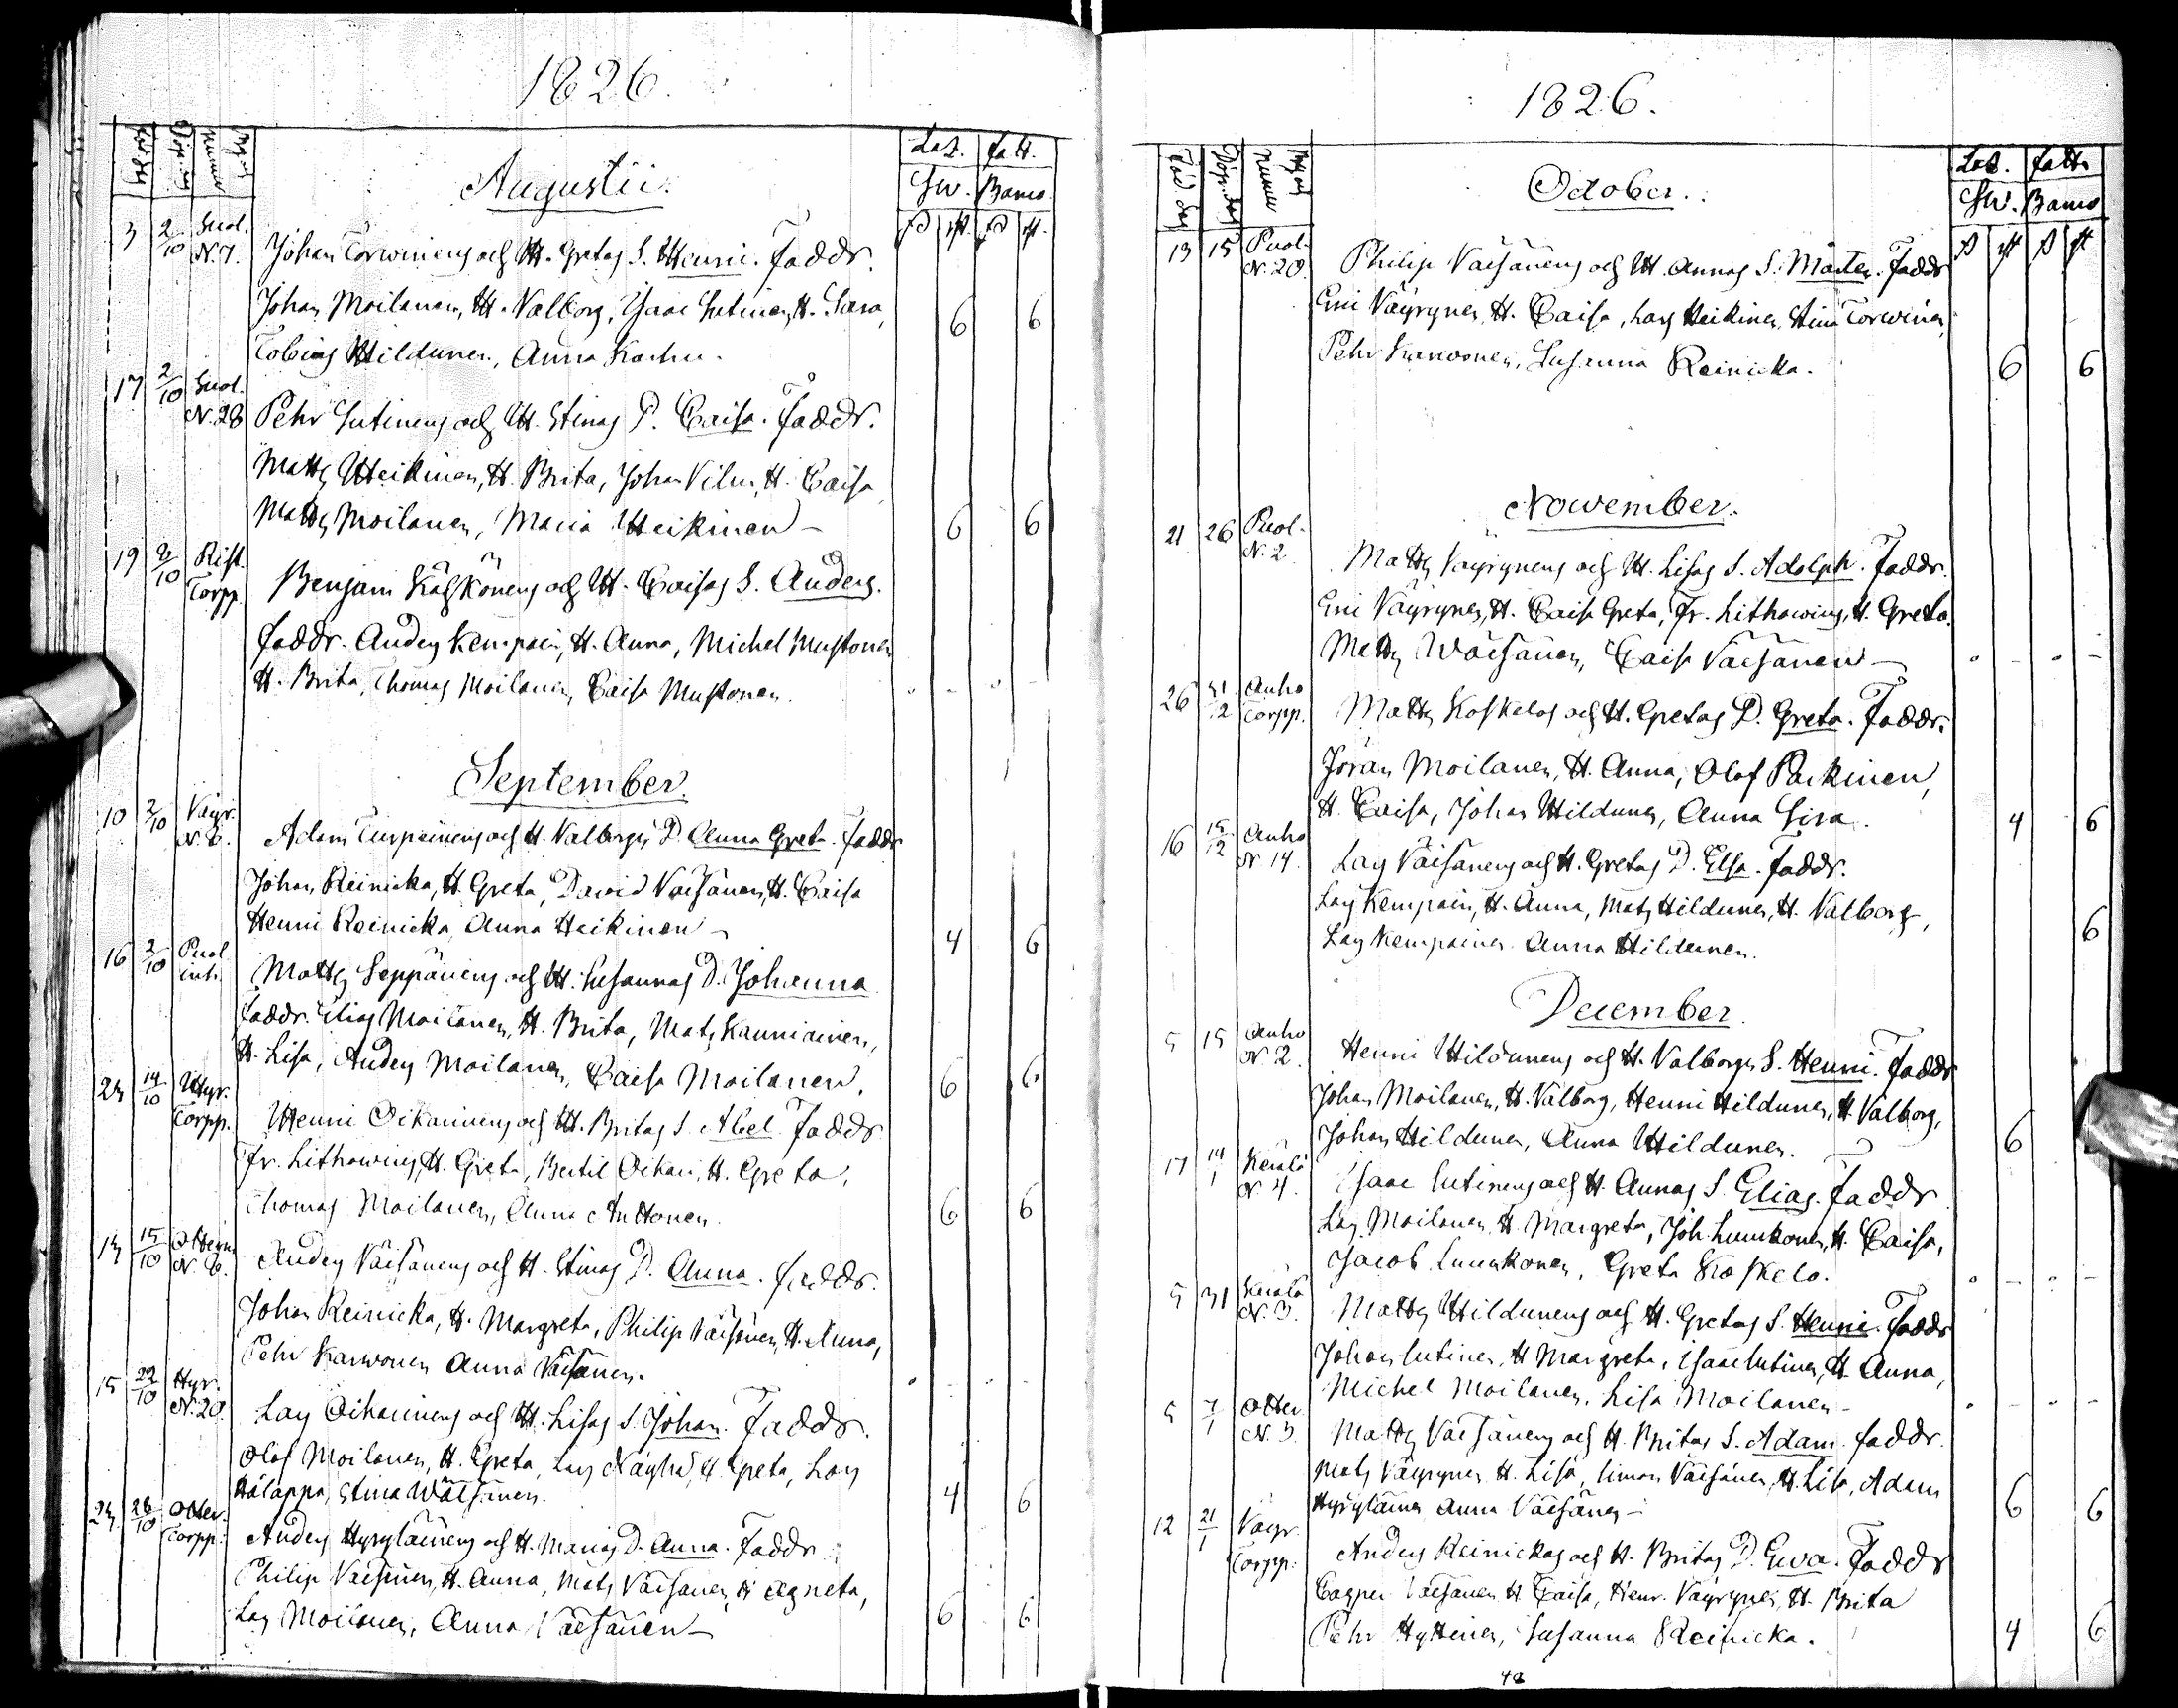 1826.
Född dag
Döp. dag
By och Numer
Las. fatt.
Sw. Banco
Augustii.
3 2/10 Suol. N. 7. Johan Torwinens och H. Gretas S. Henric. Faddr.
Johan Moilanen, H. Valborg, Isaac Lutinen, H. Sara,
Tobias Hildunen, Anna Karhu. 6 6
17 2/10 Suol. N. 28 Pehr Lutinens och H. Stinas D. Caisa. Faddr.
Matts Heikinen, H. Brita, Johan Vilmi, H. Caisa
Matts Moilanen, Maria Heikinen 6 6
19 2/10 Rist. Torpp. Benjam Käckönens och H. Caisas S. Anders.
Faddr. Anders Kempain, H. Anna, Michel Mustonen
H. Brita, Thomas Moilanen, Caisa Mustonen.
September.
10 2/10 Väyr. N. 6. Adam Turpeinens och H. Valborgs D. Anna Greta. Faddr
Johan Reinicka, H. Greta, David Väisänen, H. Caisa
Henric Reinicka, Anna Heikinen 4 6
16 2/10 Puol. inh. Matts Seppänens och H. Susannas D. Johanna
Faddr. Elias Moilanen, H. Brita, Mats Kauniainen,
H. Lisa, Anders Moilanen, Caisa Moilanen. 6 6
23 14/10 Hyr. Torpp. Henric Oikarinens och H. Britas S. Abel. Faddr
Fr. Lithowius, H. Greta, Bertil Oikari, H. Greta,
Thomas Moilanen, Anna Anttonen. 6 6
13 15/10 N. 6. Anders Väisänens och H. Stinas D. Anna. Faddr.
Johan Reinicka, H. Margreta, Philip Väisänen, H. Anna,
Pehr Karwonen Anna Väisänen.
15 22/10 Hyr. N. 20. Lars Oikarinens och H. Lisas S. Johan. Faddr.
Olof Moilanen, H. Greta, Lars H. Greta, Lars
Hälappa, Stina Wäisänen. 4 6
23 28/10 Otter. Torpp. Anders Hyryläinens och H. Marias D. Anna. Faddr
Philip Väisänen, H. Anna, Mats Väisänen, H. Agneta,
Lars Moilanen, Anna Väisänen 6 6
1826.
Född dag
Döp. dag
By och Numer
Las. fatt.
Sw. Banco
October.
13 15 Puol. N. 20. Philip Väisänens och H. Annas S. Mårten. Faddr
Eric Väyrynen, H. Caisa, Lars Heikinen, Stina Torwinen,
Pehr Karwonen, Susanna Reinicka. 6 6
Nowember.
21 26 Puol. N. 2 Matts Väyrynens och H. Lisas S. Adolph. Faddr.
Eric Väyrynen, H. Caisa Greta, Fr. Lithowius, H. Greta,
Matts Wäisänen, Caisa Väisänen
26 31/12 Auho Torpp. Matts Koskelos och H. Gretas D. Greta. Faddr.
Jöran Moilanen, H. Anna, Olof Parkinen,
H. Caisa, Johan Hildunen, Anna Sira. 4 6
16 15/12 Auho N 14. Lars Väisänens och H. Gretas D. Elsa. Faddr.
Lars Kempain, H. Anna, Mats Hildunen, H. Valborg,
Lars Kempainen Anna Hildunen. 6
December.
5 15 Auho N. 2. Henric Hildunens och H. Valborgs S. Henric. Faddr
Johan Moilanen, H. Valborg, Henric Hildunen, H. Valborg,
Johan Hildunen, Anna Hildunen. 6
17 14/1 Kerälä N 4. Isaac Lutinens och H. Annas S. Elias. Faddr
Lars Moilanen, H. Margreta, Joh. Lumkonen, H. Caisa,
Jacob Lumkonen, Greta Koskelo.
5 31 Kerälä N. 3. Matts Hildunens och H. Gretas S. Henric. Faddr
Johan Lutinen, H. Margreta, Isaac Lutinen, H. Anna,
Michel Moilanen, Lisa Moilanen
5 7/1 Otter N. 3. Matts Väisänens och H. Britas S. Adam. Faddr.
Mats Väyrynen, H. Lisa, Simon Väisänen, H. Lisa, Adam
Hyryläinen Anna Väisänen 6 6
12 21/1 Väyr. Torpp. Anders Reinickas och H. Britas D. Ewa. Faddr
Casper Väisänen H. Caisa, Henr. Väyrynen, H. Brita
Pehr Hyttinen, Susanna Reinicka. 4 6
48